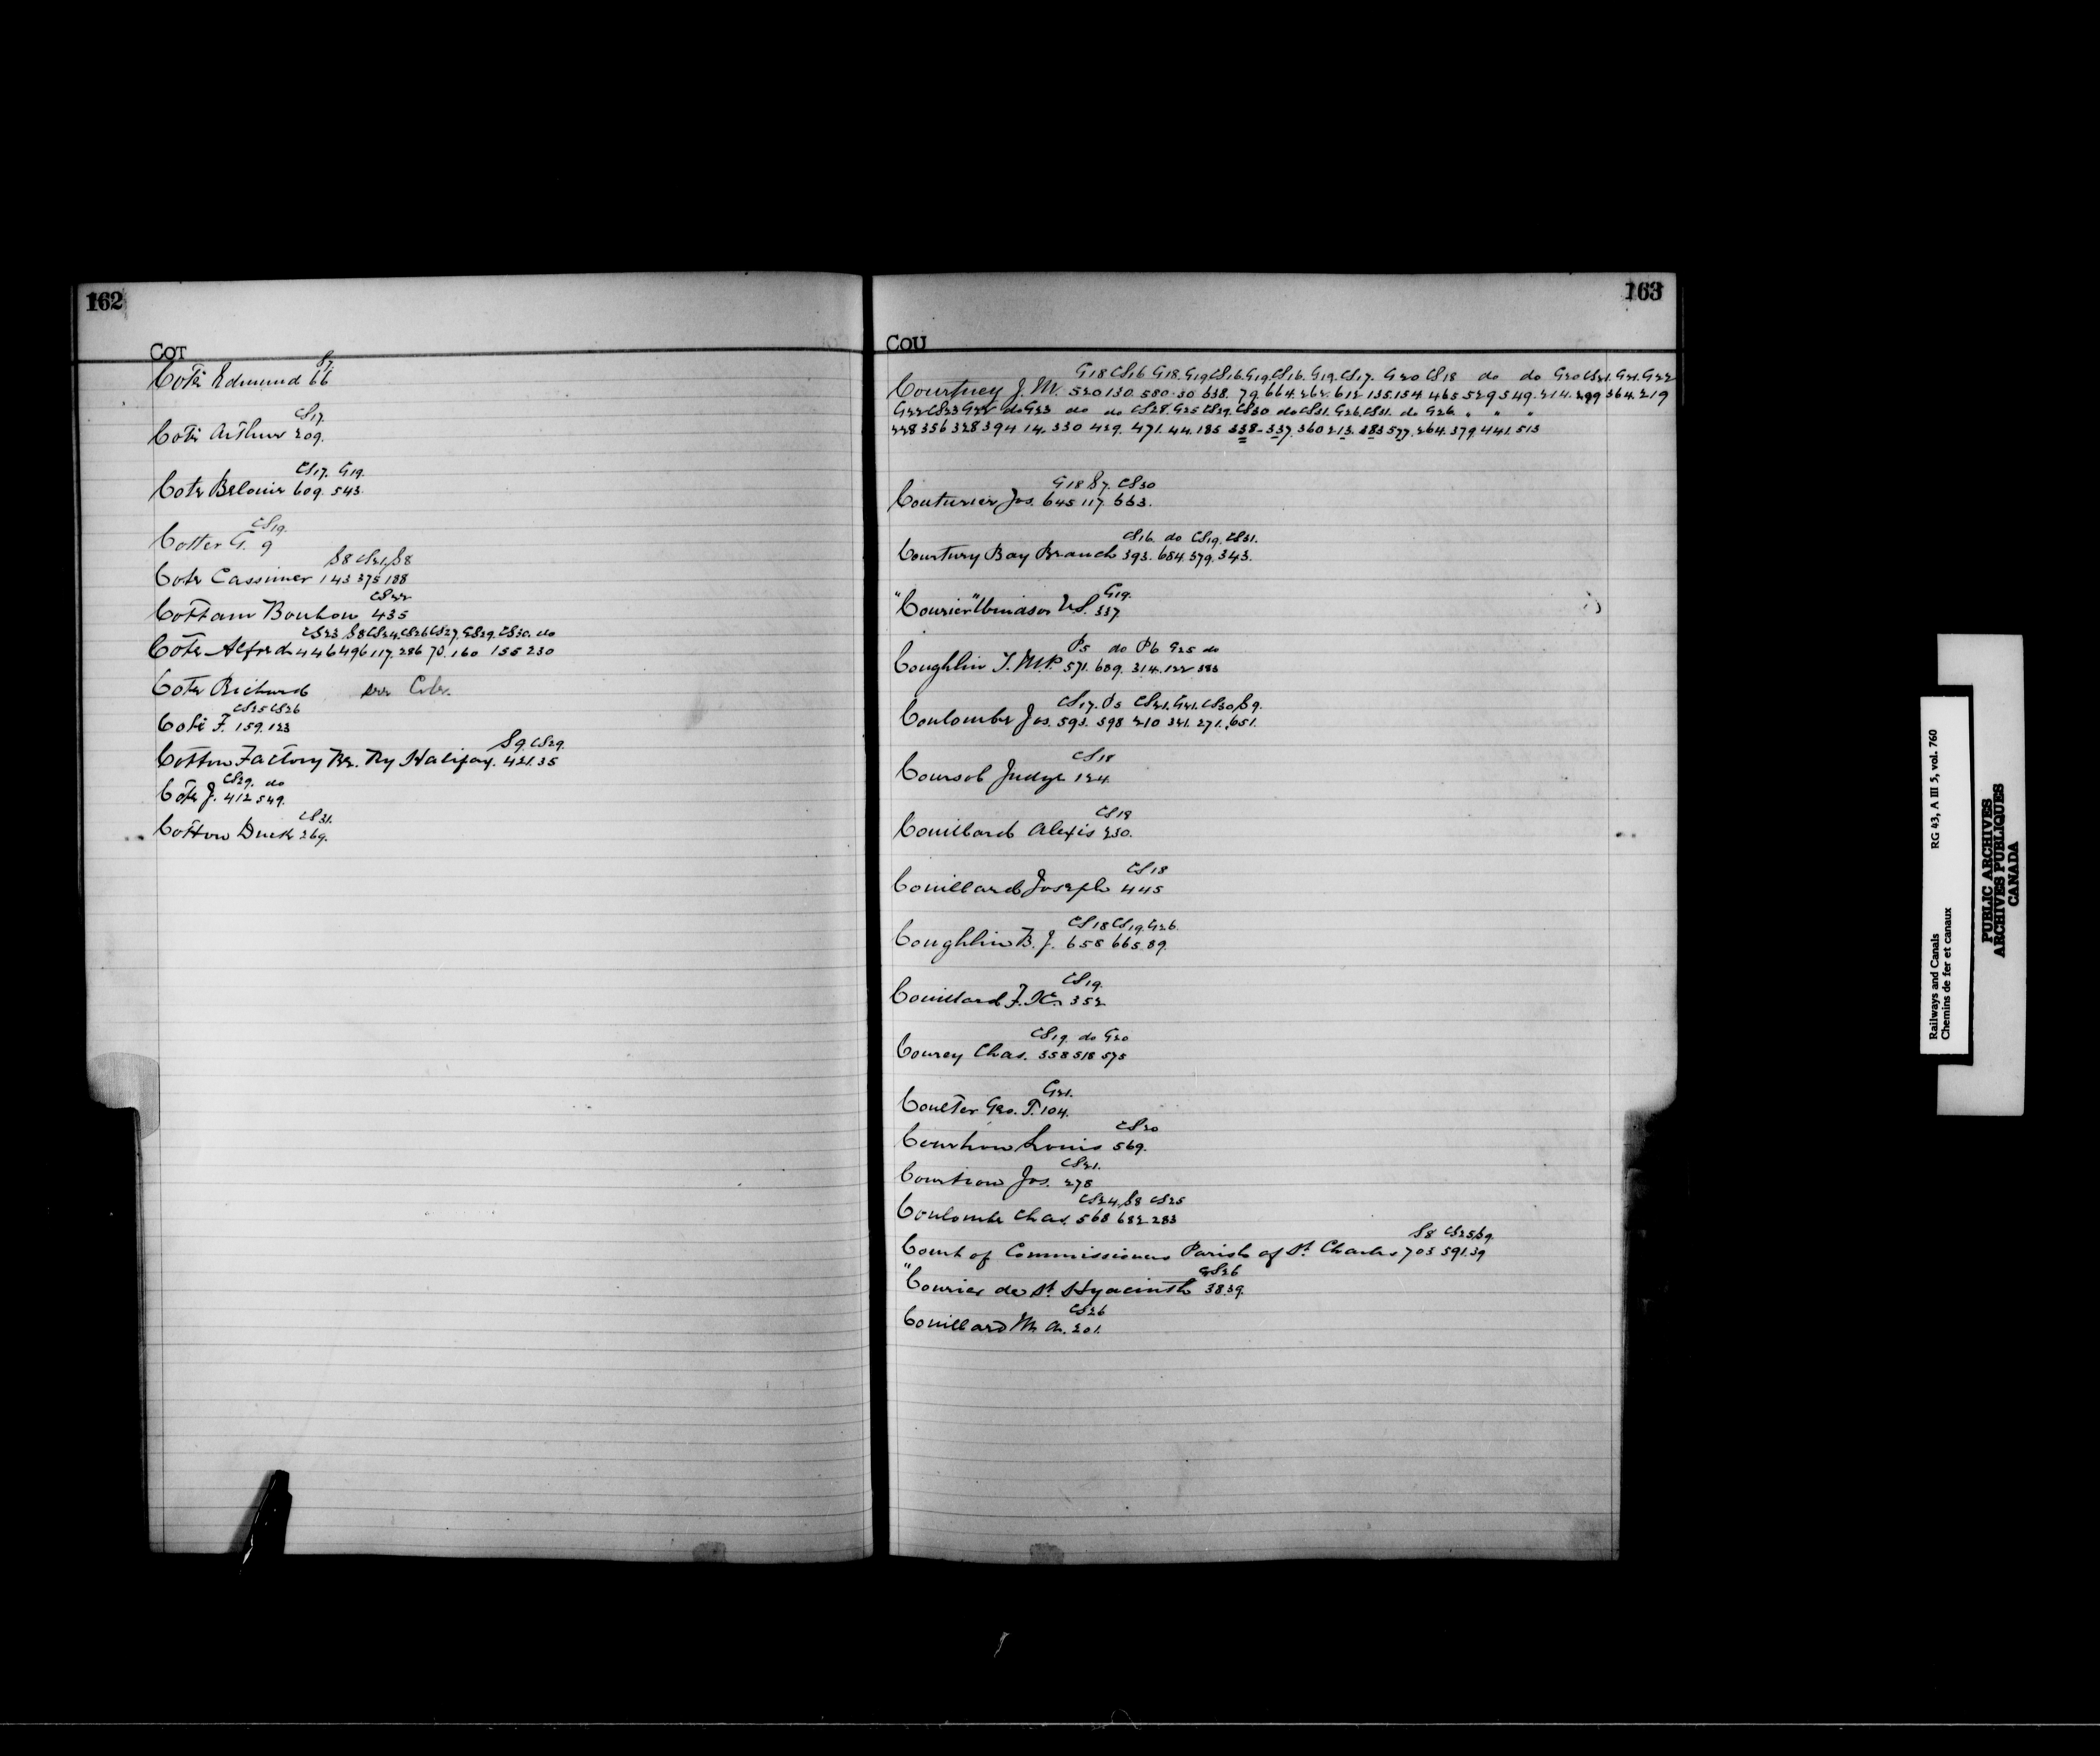 162
COT
S7.
Coté Edmund 66
CS17.
Coté Arthur 209.
CS17. G19.
Cote Belonie 609. 543.
CS19.
Cotter G. 9
S8 CS21, S8
Cote Cassimer 143 375 188
CS22
Cottam 435
CS23 S8 CS24. CS26 CS27. CS29. CS30. do
Cote Alfred 446 496 117. 286 70. 160 155 230
Cote Richard see
CS25 CS26
Coté F. 159. 123
S9. CS29.
Cotton Factory Br. Ry Halifax. 421. 35
CS29. do
Cote J. 412 549.
CS31.
Cotton Duck 269.
163
COU
G18 CS16 G18. G19 CS16. G19. CS16. G19. CS17. G20 CS18 do do G20 CS21. G21. G22
Courtney J. M. 520 130. 580. 30 638. 79. 664. 262. 612 135. 154 465 529 549. 214. 299 364. 219
G22 CS23 G22 do G23 do do CS28. G25 CS29. CS30 do CS31. G26. CS31. do G26 " " "
228 356 328 394 14. 330 429. 471. 44. 185 338-337. 360 213. 383 577. 264. 379. 441. 513
G18 S7. CS30
Couturier Jos. 645 117. 663.
CS16 do CS19. CS31.
Courtney Bay Branch 393. 684. 379. 343.
G19.
"Courier" Windsor N.S. 337
P5 do P6 G25 do
Coughlin T. M.P. 571. 609. 314. 122 383
CS17. P5 CS21. G21. CS30, S9.
Coulombe Jos. 593. 598 210 321. 271. 651.
CS18
Coursol Judge 124.
CS18
Couillard Alexis 230.
CS18
Couillard Joseph 445
CS18 CS19. G26.
Coughlin B. J. 658 665. 89.
CS19.
Couillard F. X. 352
CS19. do G20
Courcy Chas. 358 518 575
G21.
Coulter Geo. T. 104.
CS20
Louis 569.
CS21.
Jos. 278
CS24, S8 CS25
Coulombe Chas. 568 682 283
S8 CS25, S9.
Court of Commissioners Parish of St Charles 703 591. 39
CS26
"Courier de St Hyacinth 38 39.
CS26
Couillard M. A. 201.
Railways and Canals
Chemins de fer et canaux
RG 43, A III 5, vol. 760
PUBLIC ARCHIVES
ARCHIVES PUBLIQUES
CANADA